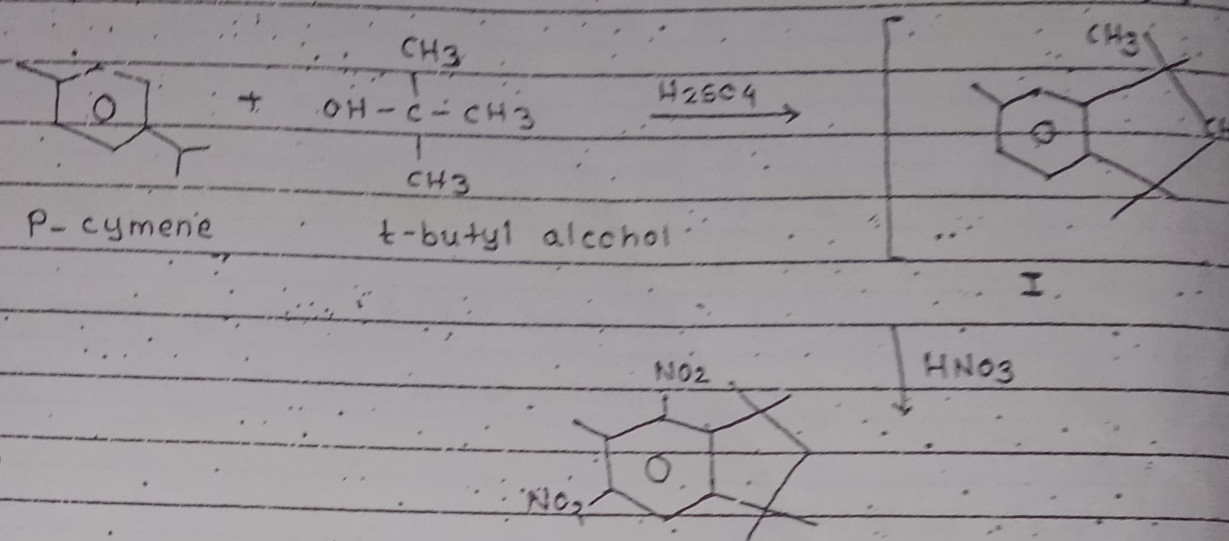 CH3
+ OH - C - CH3
CH3
H2SO4
CH3
P- cymene
t-butyl alcohol
I
HNO3
NO2
NO2